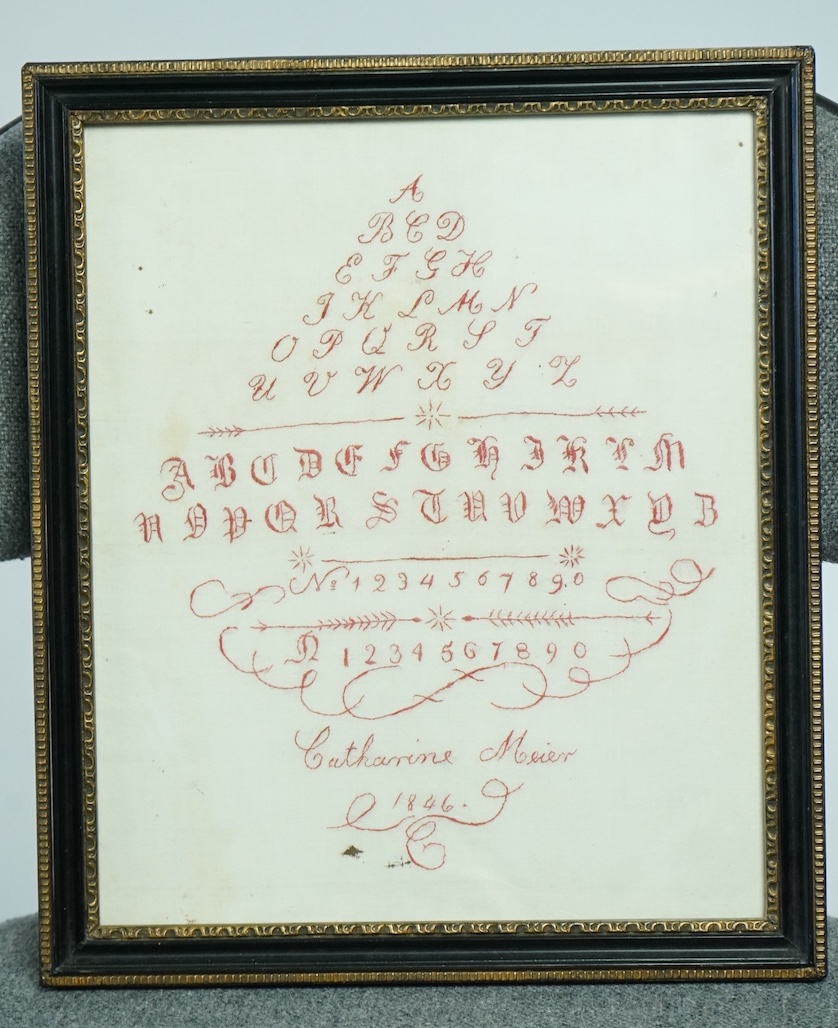 A
B C D
E F G H
J K L M N
O P Q R S T
U V W X Y Z
A B C D E F G H J K L M
N O P Q R S T U V W X Y Z
No: 1 2 3 4 5 6 7 8 9.0
N 1 2 3 4 5 6 7 8 9 0
Catharine Meier
1846.
C